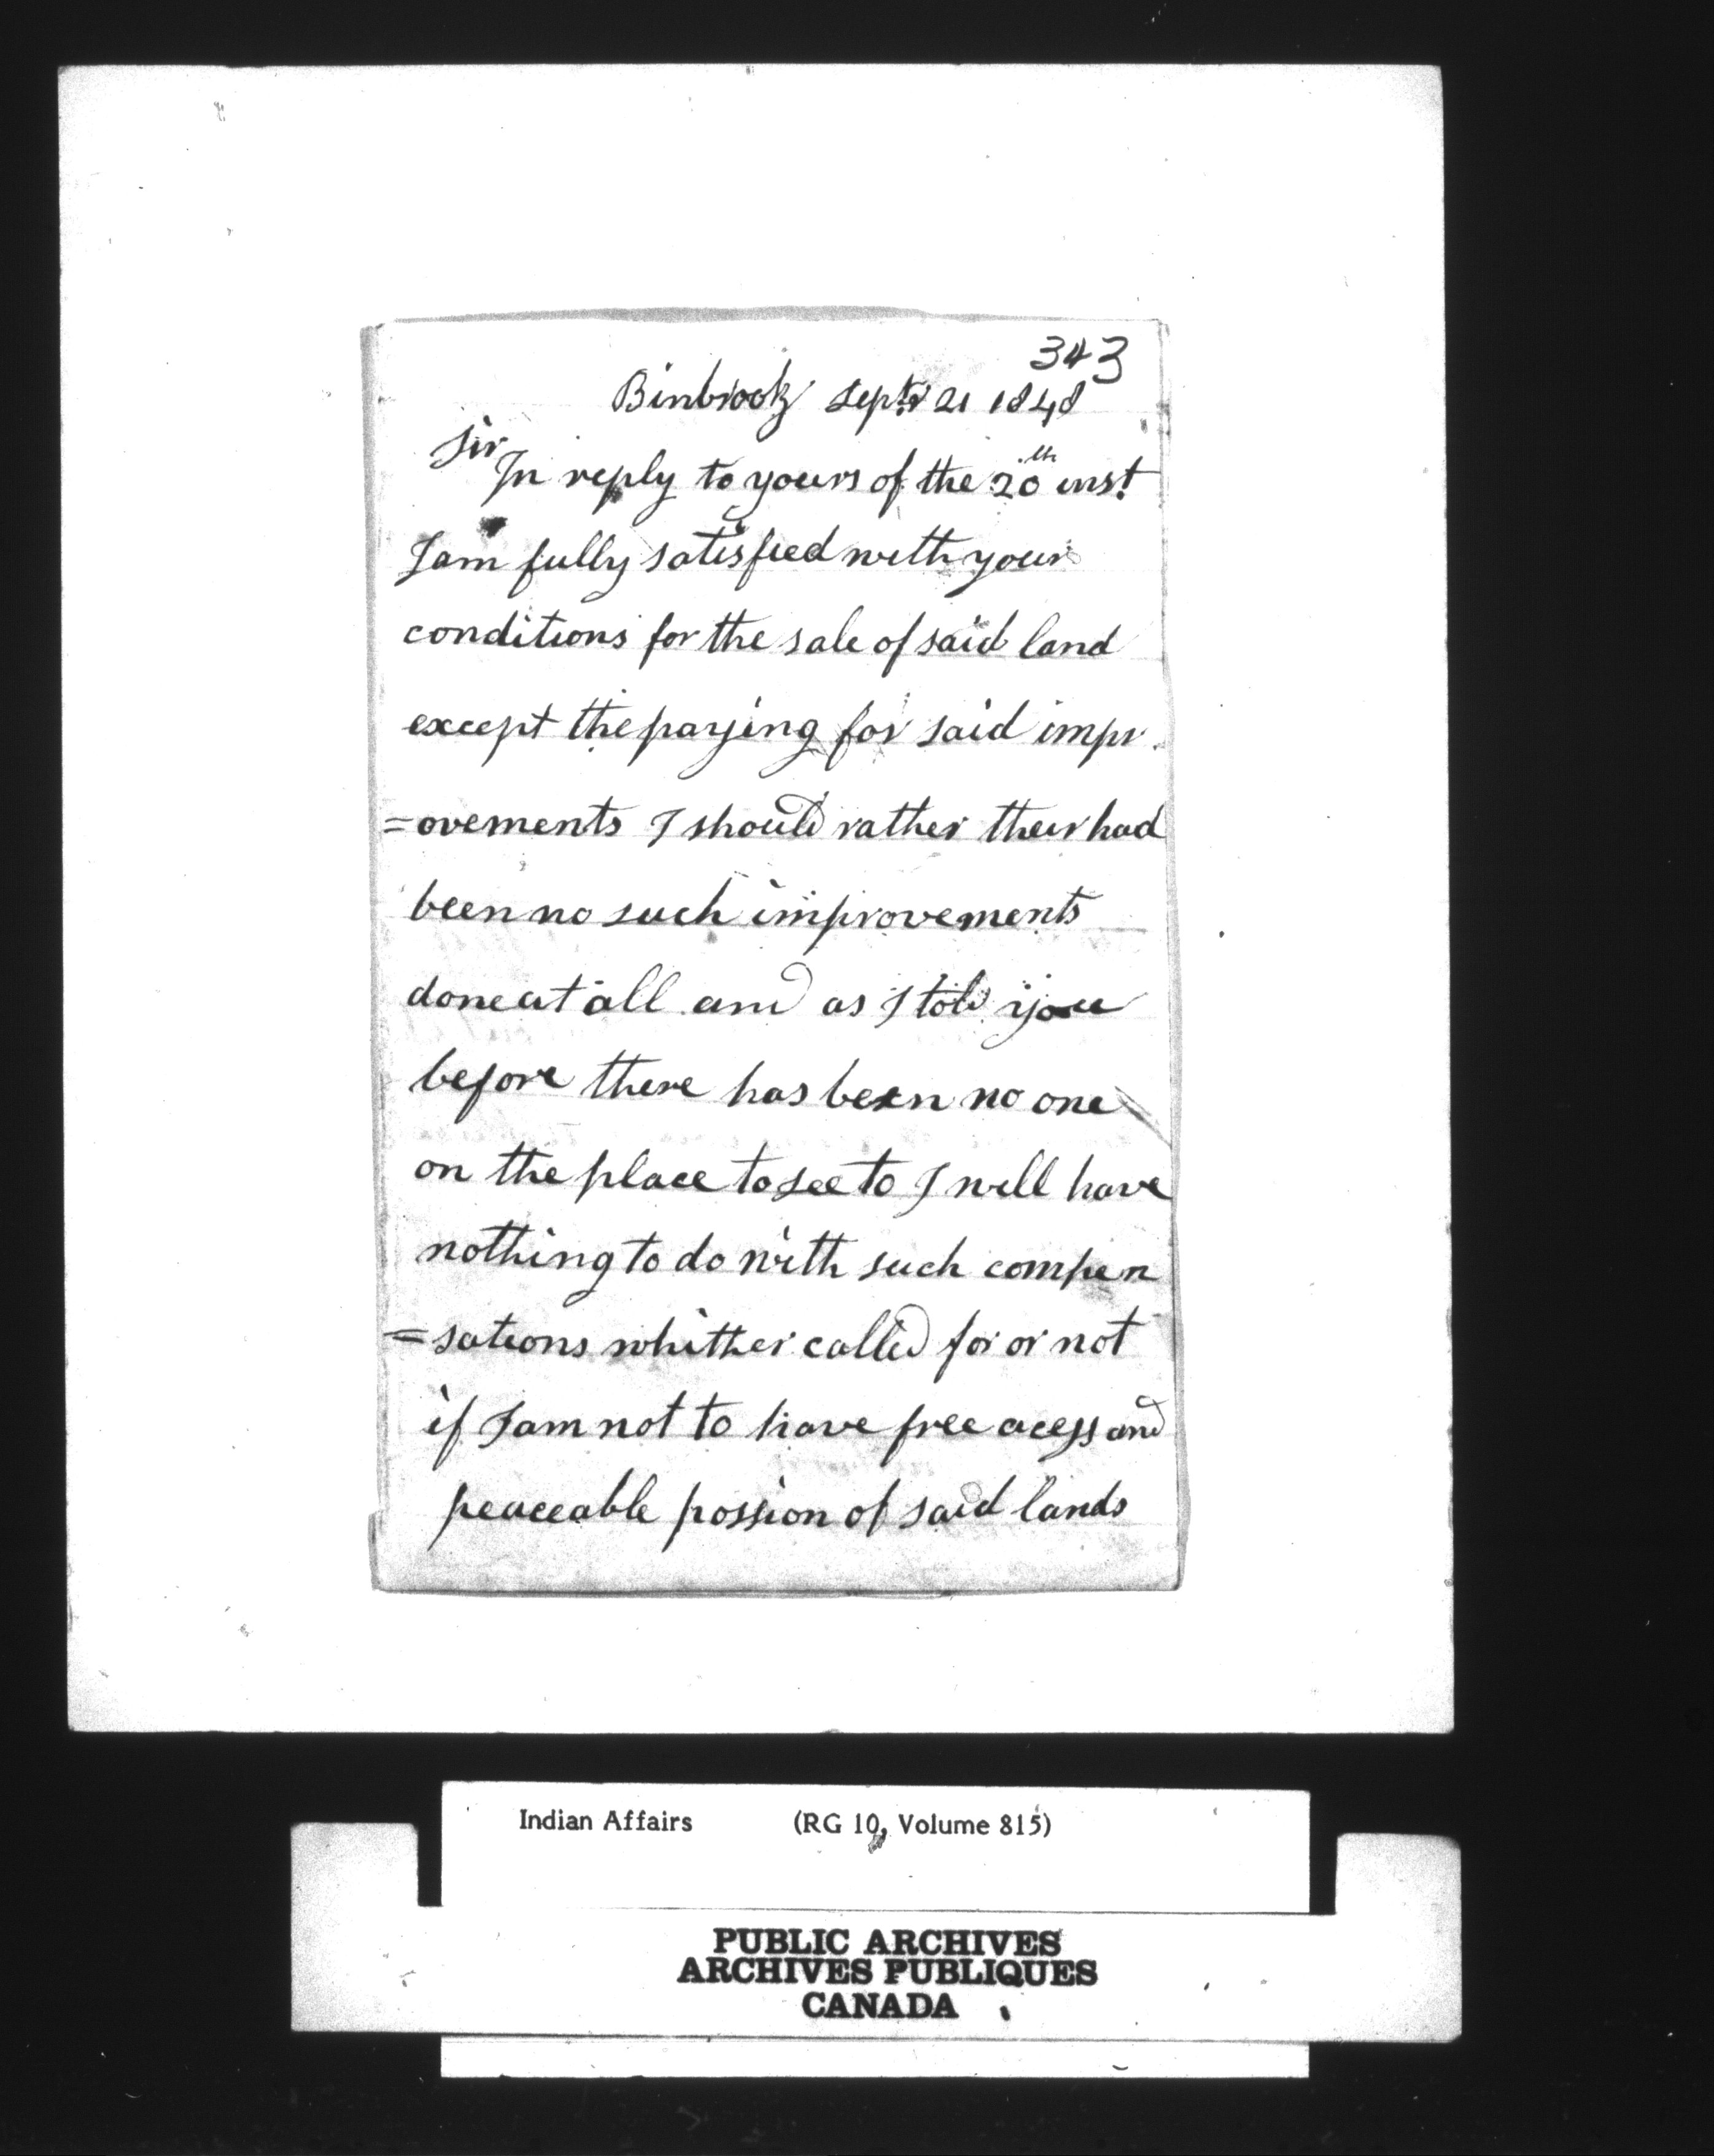 343
Binbrook Septr 21 1848
Sir
In reply to yours of the 20th inst
I am fully satisfied with your
conditions for the sale of said land
except the paying for said impr
=ovements I should rather their had
been no such improvements
done at all and as I told you
before there has been no one
on the place to see to I will have
nothing to do with such compen
=sations whither called for or not
if I am not to have free acess and
peaceable possion of said lands
Indian Affairs (RG 10, Volume 815)
PUBLIC ARCHIVES
ARCHIVES PUBLIQUES
CANADA